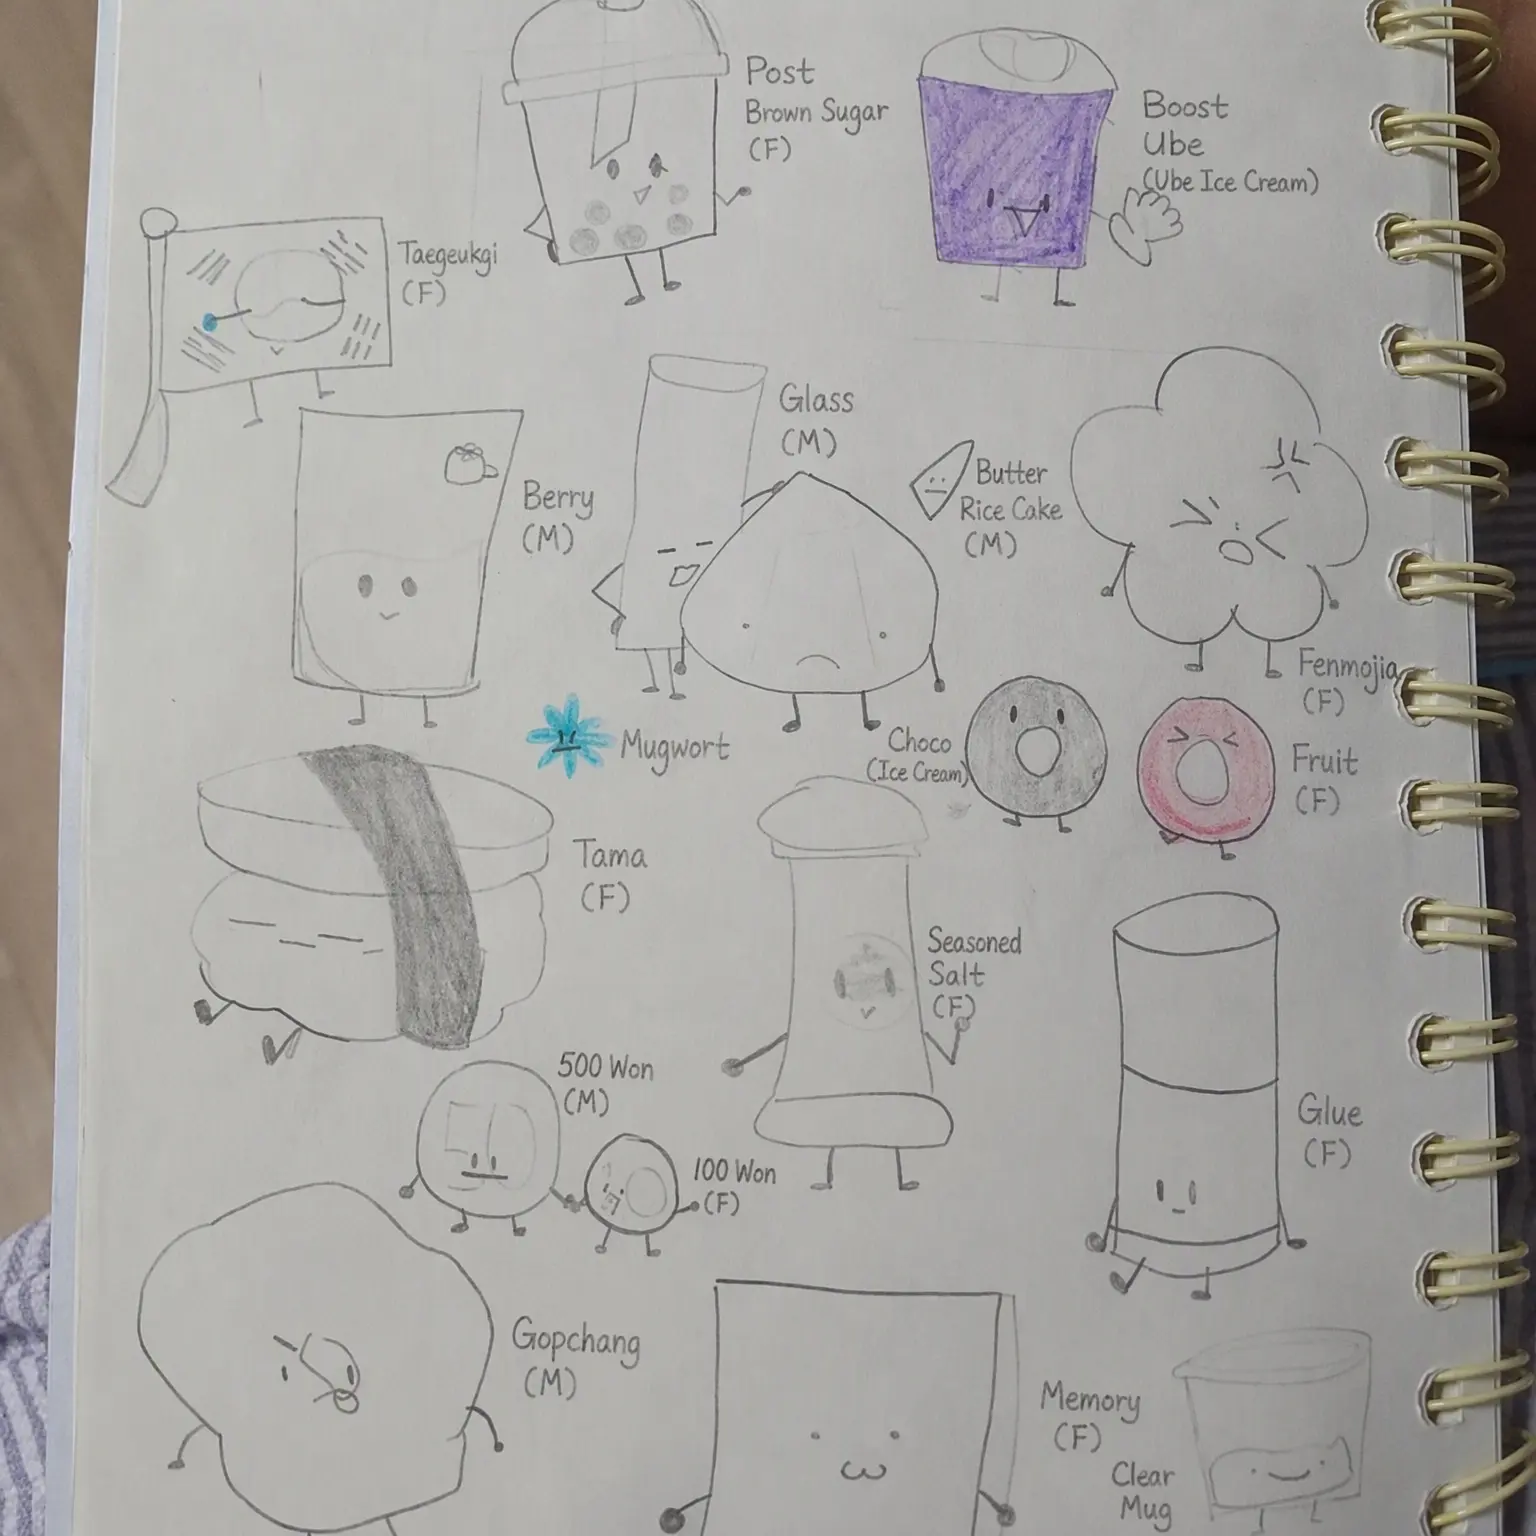 Post
Brown Sugar
(F)
Boost
Ube
(Ube Ice Cream)
Taegeukgi
(F)
Glass
(M)
Berry
(M)
Butter
Rice Cake
(M)
Fenmojia
(F)
Mugwort
Choco
(Ice Cream)
Fruit
(F)
Tama
(F)
Seasoned
Salt
(F)
500 Won
(M)
100 Won
(F)
Glue
(F)
Gopchang
(M)
Memory
(F)
Clear
Mug